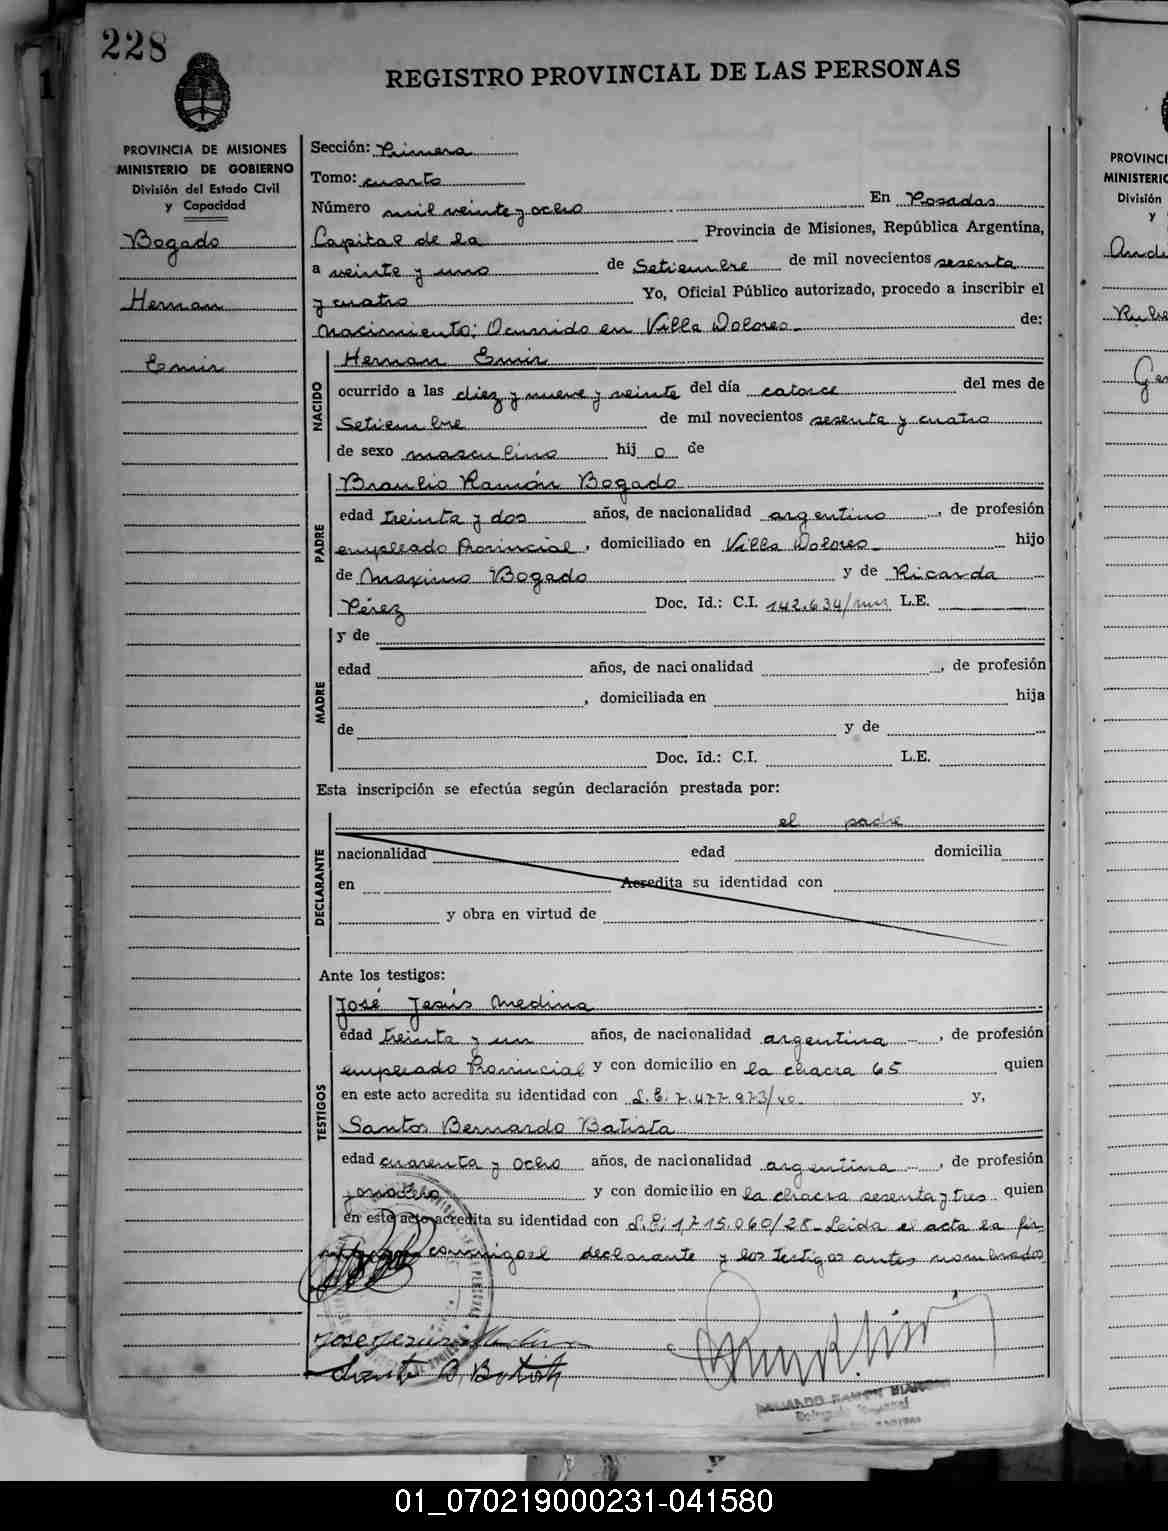 228
REGISTRO PROVINCIAL DE LAS PERSONAS
PROVINCIA DE MISIONES
MINISTERIO DE GOBIERNO
División del Estado Civil
y Capacidad
Bogado
Hernan
Emir
Sección: Primera
Tomo: cuarto
Número mil veinte y ocho En Posadas
Capital de la Provincia de Misiones, República Argentina,
a veinte y uno de Setiembre de mil novecientos sesenta
y cuatro Yo, Oficial Público autorizado, procedo a inscribir el
Nacimiento; Ocurrido en Villa Dolores de:
NACIDO
Hernan Emir
ocurrido a las diez y nueve y veinte del día catorce del mes de
Setiembre de mil novecientos sesenta y cuatro
de sexo masculino hijo de
PADRE
Braulio Ramón Bogado
edad treinta y dos años, de nacionalidad argentino, de profesión
empleado Provincial, domiciliado en Villa Dolores hijo
de Maximo Bogado y de Ricarda
Pérez Doc. Id.: C.I. 142.634/mnes L.E.
MADRE
y de
edad años, de nacionalidad , de profesión
, domiciliada en hija
de y de
Doc. Id.: C.I. L.E.
Esta inscripción se efectúa según declaración prestada por:
DECLARANTE
el padre
nacionalidad edad domicilia
en Acredita su identidad con
y obra en virtud de
Ante los testigos:
TESTIGOS
José Jesús Medina
edad treinta y un años, de nacionalidad argentina, de profesión
empleado Provincial y con domicilio en la chacra 65 quien
en este acto acredita su identidad con L.E. 7.477.973/40 y,
Santos Bernardo Batista
edad cuarenta y ocho años, de nacionalidad argentina, de profesión
jornalero y con domicilio en la chacra sesenta y tres quien
en este acto acredita su identidad con L.E. 1.715.060/28 Leida el acta la fir
conmigo el declarante y los testigos antes nombrados
Jose Jesus Medina
Santo B. Batista
RAMON
PROVINCI
MINISTERIO
División
y
01_070219000231-041580